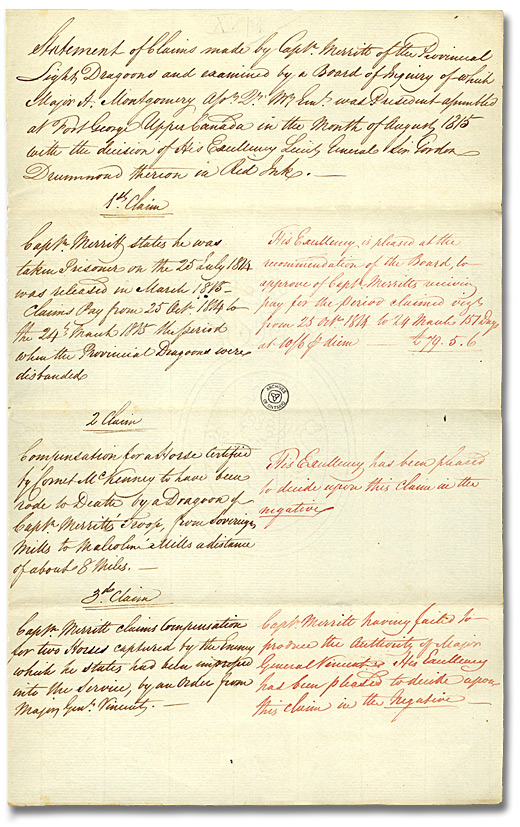 Statement of Claims made by Capt. Merritt of the Provincial
Light Dragoons and examined by a Board of Inquiry of which
Major A. Montgomery was President assembled
at Fort George Upper Canada in the Month of August 1815
with the decision of His Excellency Lieut. General Sir Gordon
Drummond thereon in Red Ink. —
1st. Claim
Capt. Merritt states he was
taken Prisoner on the 25 July 1814
was released in March 1815.
Claims Pay from 25 Oct. 1814 to
the 24th March 1815 the period
when the Provincial Dragoons were
disbanded
His Excellency is pleased at the
recommendation of the Board, to
approve of Capt. Merritts receiving
pay for the Period claimed vizt.
from 25 Oct. 1814 to 24 March 151 Days
at 10/6 p diem — £79. 5. 6
ARCHIVES
OF ONTARIO
2 Claim
Compensation for a Horse certified
by Cornet McKenney to have been
rode to Death by a Dragoon of
Capt. Merritts Troop, from Sovereigns
Mills to Malcolms Mills a distance
of about 8 Miles. —
His Excellency has been pleased
to decide upon this Claim in the
negative
3rd. Claim
Capt. Merritt claims Compensation
for two Horses captured by the Enemy
which he states had been impressed
into the Service, by an Order from
Major Genl. Vincent. —
Capt. Merritt having failed to
produce the Authority of Major
General Vincent His Excellency
has been pleased to decide upon
this claim in the Negative —